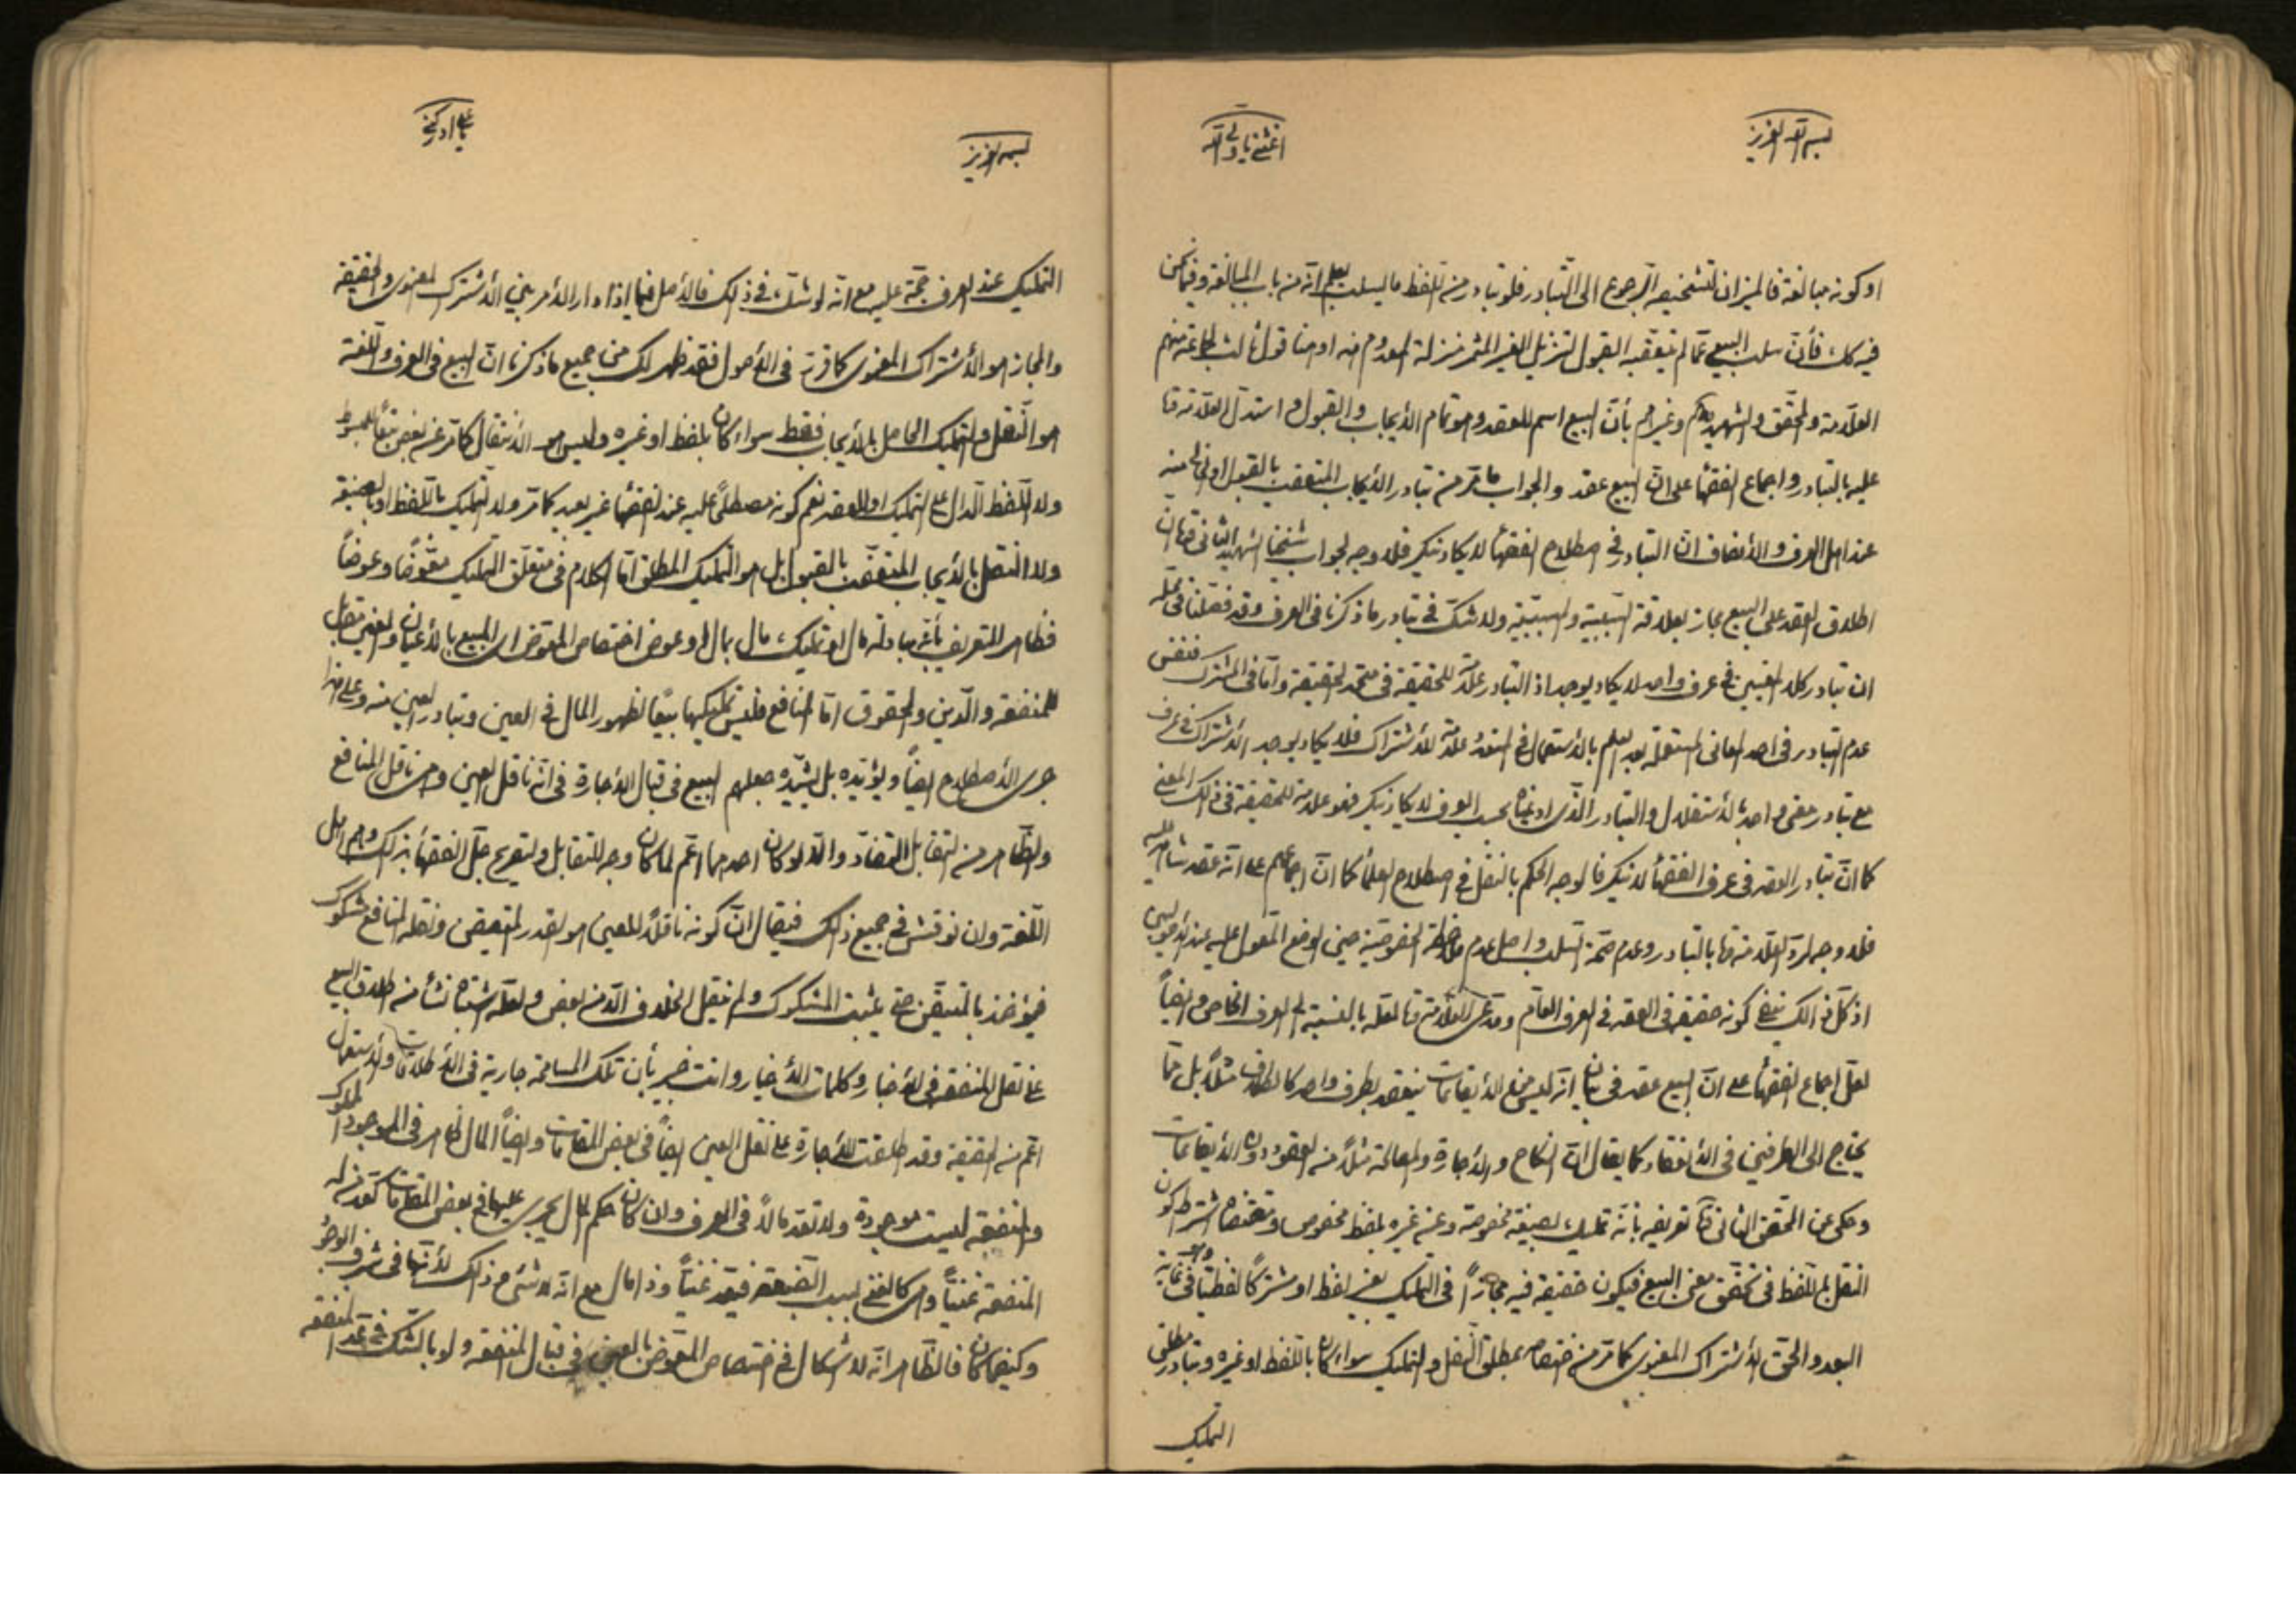 بسم الله العزيز
اغثني يا ولي الله
او كونه مبالغة فالميزان لتشخيصه الرجوع الى التبادر فلو تبادر من اللفظ ما ليسلب يعلم انه من باب المبالغة وفيما نحن
فيه كك فأن سلب البيع عما لم يتعقبه القبول لتنزيل الغير المثمر منزلة المعدوم منه او منا قول ثالث لجماعة منهم
العلامة والمحقق والشهيد وغيرهم بأن البيع اسم للعقد وهو تمام الايجاب والقبول واستدل العلامة قا
عليه بالتبادر واجماع الفقهأ على ان البيع عقد والجواب ما مر من تبادر الايجاب المتعقب بالقبول منه
عند اهل العرف والانصاف ان التبادر في اصطلاح الفقهأ لا يكاد ينكر فلا وجه لجواب شيخنا الشهيد الثاني بان
اطلاق العقد على البيع مجاز بعلاقة السببية والمسببية ولا شك في تبادر ما ذكرنا في العرف وقد فصلنا في محله
ان تبادر كلا المعنيين في عرف واحد لا يكاد يوجد اذ التبادر علامة للحقيقة في متحد الحقيقة واما في المشترك فنفس
عدم التبادر في احد المعاني المستعملة بعد العلم بالاستعمال في المتعدد علامة للاشتراك فلا يكاد يوجد الاشتراك في عرف
مع تبادر معنى واحد بالاستقلال والتبادر الذي ادعيناه بحسب العرف لا يكاد ينكر فهو علامة للحقيقة في ذالك المعنى
كما ان تبادر العقد في عرف الفقهأ لا ينكر فالوجه الحكم بالنقل في اصطلاح العلمأ كما ان اجماعهم على انه عقد شاهد عليه
فلا وجه لرد العلامة قا بالتبادر وعدم صحة السلب واصل عدم ملاحظة الخصوصية حين الوضع المعول عليه عند الاصوليين
اذ كل ذالك ينفي كونه حقيقة في العقد في العرف العام ومدعى العلامة قا لعله بالنسبة الى العرف الخاص وايضاً
لعل اجماع الفقهأ على ان البيع عقد في بيان انه ليس من الايقاعات ينعقد بطرف واحد كالطلاق مثلاً بل مما
يحتاج الى الطرفين في الانعقاد كما يقال ان النكاح والاجارة والمصالحة مثلاً من العقود دون الايقاعات
وحكى عن المحقق الثاني تعريفه بأنه تمليك بصيغة مخصوصة وعن غيره بلفظ مخصوص ومقتضاه اشتراط كون
النقل باللفظ في تحقق معنى البيع فيكون حقيقة فيه مجازاً في التمليك بغير لفظ او مشتركاً لفظياً وهو في غاية
البعد والحق الاشتراك المعنوي كما مر من اختصاصه بمطلق النقل والتمليك سواء كان باللفظ او غيره وتبادر مطلق
التمليك
بسمه العزيز
يا علي ادركني
التمليك عند العرف حجة عليه مع انه لو شك في ذلك فالاصل فيما اذا دار الامر بين الاشتراك المعنوي والحقيقة
والمجاز هو الاشتراك المعنوي كما قرر في الاصول فقد ظهر لك من جميع ما ذكرنا ان البيع في العرف واللغة
هو النقل والتمليك الحاصل بالايجاب فقط سواء كان بلفظ او غيره وليس هو الانتقال كما مر عن بعض تبعاً للمبسوط
ولا اللفظ الدال على التمليك او العقد نعم كونه مصطلحاً عليه عند الفقهأ غير بعيد كما مر ولا التمليك باللفظ او بالصيغة
ولا النقل بالايجاب المتعقب بالقبول بل هو التمليك المطلق اما الكلام في متعلق التمليك معوضاً وعوضاً
فظاهر التعريف بأنه مبادلة مال او تمليك مال بمال او عوض اختصاص المعوض اي المبيع بالاعيان والمعنى مقابل
للمنفعة والدين والحقوق اما المنافع فليس تمليكها بيعاً لظهور المال في العين وتبادر العين منه وعلى هذا
جرى الاصطلاح ايضاً ويؤيده بل يشيده جعلهم البيع في قبال الاجارة في انه ناقل العين وهي ناقل المنافع
والظاهر من التقابل التضاد والا لو كان احدهما اعم لما كان وجه للتقابل ولتصريح جل الفقهأ بذلك وهم اهل
اللغة وان نوقش في جميع ذلك فيقال ان كونه ناقلاً للعين هو القدر المتيقن ونقله المنافع مشكوك
فيؤخذ بالمتيقن حتى يثبت المشكوك ولم ينقل الخلاف الا من بعض ولعله اشتباه نشأ من اطلاق البيع
على نقل المنفعة في الاخبار وكلمات الاخيار وانت خبير بأن تلك المسامحة جارية في الاطلاقات والاستعمال
اعم من الحقيقة وقد اطلقت الاجارة على نقل العين ايضاً في بعض المقامات وايضاً المال ظاهر في الموجود المملوك
والمنفعة ليست موجودة ولا تعد مالاً في العرف وان كان حكم المال يجري عليها في بعض المقامات كعد من له
المنفعة غنياً وهي كالغنى بسبب الصنعة فيعد غنياً وذا مال مع انه لا شيء من ذلك لأنها في شرف الوجود
وكيفما كان فالظاهر انه لا اشكال في اختصاص المعوض بالعين في قبال المنفعة ولو بالشك في عد المنفعة